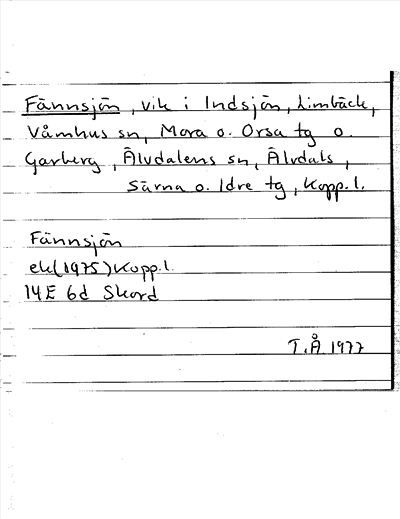 Fännsjön, vik i Indsjön, Limbäck,
Våmhus sn, Mora o. Orsa tg o.
Garberg, Älvdalens sn, Älvdals,
Särna o. Idre tg, Kopp.l.
Fännsjön
ek(1975)Kopp.l.
14E 6d Skord
T.Å 1977